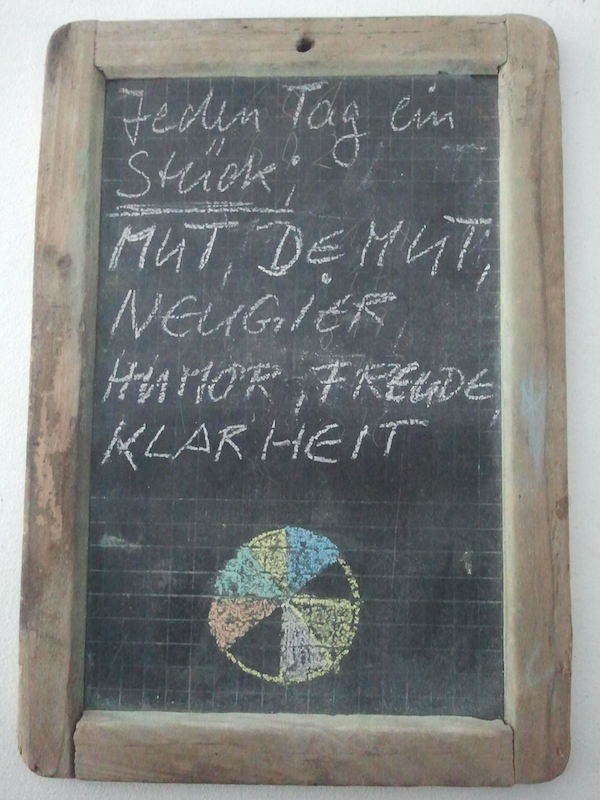 Jeden Tag ein
Stück:
MUT, DEMUT,
NEUGIER,
HUMOR, FREUDE,
KLARHEIT